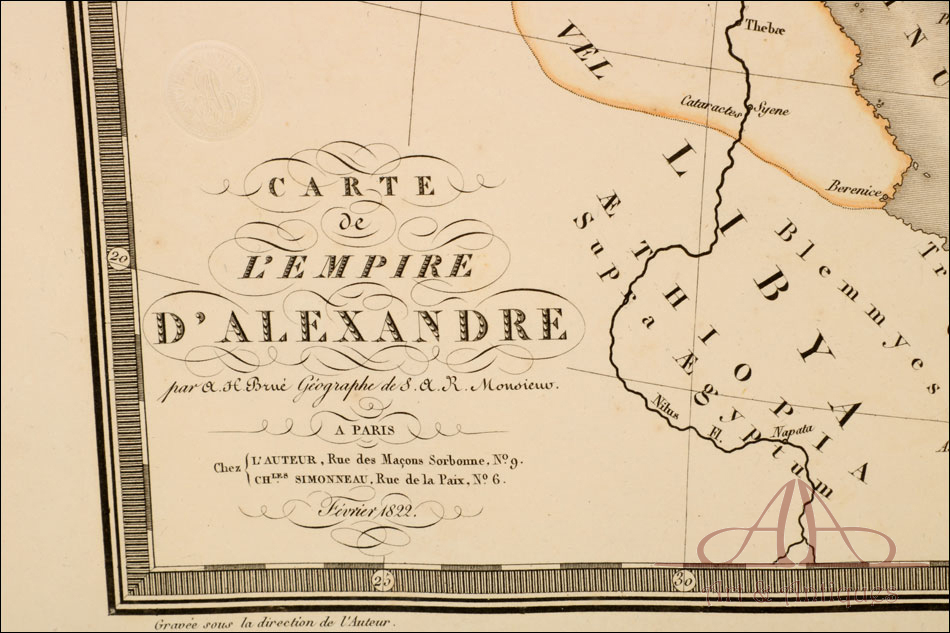 CARTE
de
L'EMPIRE
D'ALEXANDRE
par A. H. Brué Géographe de S. A. R. Monsieur.
A PARIS
Chez { L'AUTEUR, Rue des Maçons Sorbonne, Nº 9.
CHLES SIMONNEAU, Rue de la Paix, Nº 6.
Février 1822.
Gravée sous la direction de l'Auteur.
20
25
30
VEL
Thebæ
Cataractes
Syene
Berenice
LIBYA
ÆTHIOPIA
Supra Ægyptum
Blemmyes
Nilus Fl.
Napata
Art & Antiques